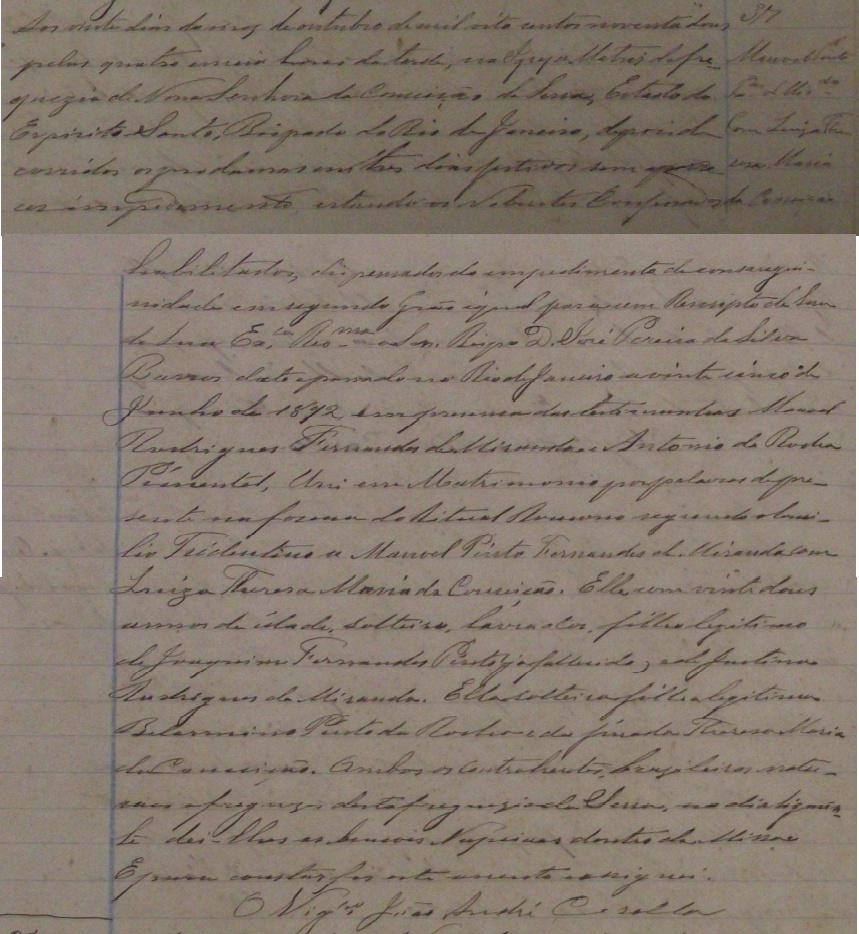 Aos vinte dias do mez de outubro de mil oito centos noventa dous
pelas quatro e meia horas da tarde, na Igreja Matriz da fre-
guezia de Nossa Senhora da Conceição da Serra, Estado do
Espirito Santo, Bispado do Rio de Janeiro, depois de
corridos os proclamas em tres dias festivos sem appare
cer impedimento, estando os Nubentes Confessados
37
Manoel Pinto
Com Luiza The
resa Maria
da Conceição
habilitados, dispensados do impedimento de consangui-
nidade em segundo Gráo igual para cem Rescripto de
de Sua Ex.cia Rev.ma o Sr. Bispo D. José Pereira da Silva
Barros datado e passado no Rio de Janeiro a vinte cinco de
Junho de 1892 em presença das testimunhas Manoel
Rodrigues Fernandes de Miranda e Antonio da Rocha
Pimentel, Uni em Matrimonio por palavras de pre-
sente na forma do Ritual Romano segundo o Conci-
lio Tridentino a Manoel Pinto Fernandes de Miranda com
Luiza Theresa Maria da Conceição. Elle com vinte dous
annos de idade, solteiro, lavrador, filho legitimo
de Joaquim Fernandes Pinto já fallecido, e de Justina
Rodrigues de Miranda. Ella solteira filha legitima
Belarmino Pinto da Rocha e da finada Theresa Maria
da Conceição. Ambos os Contrahentes, brazileiros natu-
raes e freguezes desta freguezia da Serra, no dia siguin-
te dei-lhes as bençois Nupciaes dentro da Missa
E para constar fiz este assento e assignei.
O Vig.ro João André Casella